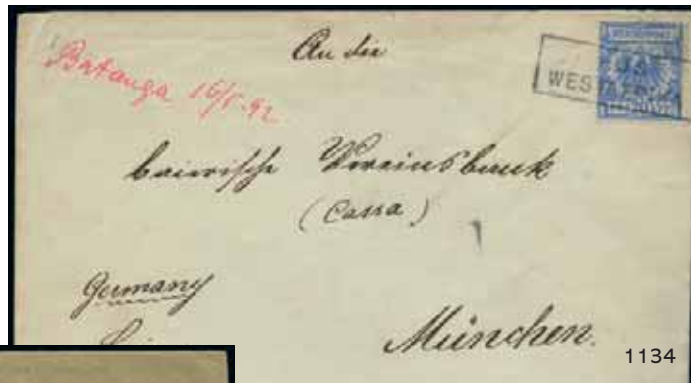 An die
Batanga 16/5.92
WEST
bairische Vereinsbank
(Cassa)
Germany
München.
1134